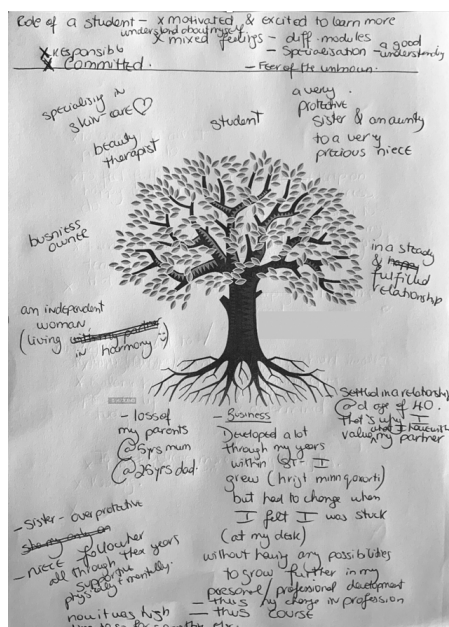 Role of a student - x motivated & excited to learn more
understand about myself
x mixed feelings - diff. modules
- Specialisation - a good understanding
x responsible
x Committed.
- Fear of the unknown.
specialising in
skin-care
beauty
therapist
student
a very
protective
sister & an aunty
to a very
precious niece
business
owner
in a steady
& happy
fulfilled
relationship
an independent
woman
(living with my partner
in harmony :)
- loss of
my parents
@ 5yrs mum
@ 26yrs dad.
- Business
Developed a lot
through my years
within - I
grew
but had to change when
I felt I was stuck
(at my desk)
without having any possibilities
to grow further in my
personal/professional development
- thus my change in profession
- thus course
- Settled in a relationship
@ d age of 40.
That's why I
value what I have with
my partner
- Sister - overprotective
- niece
all through her years
supportive
physically & mentally.
now it was high